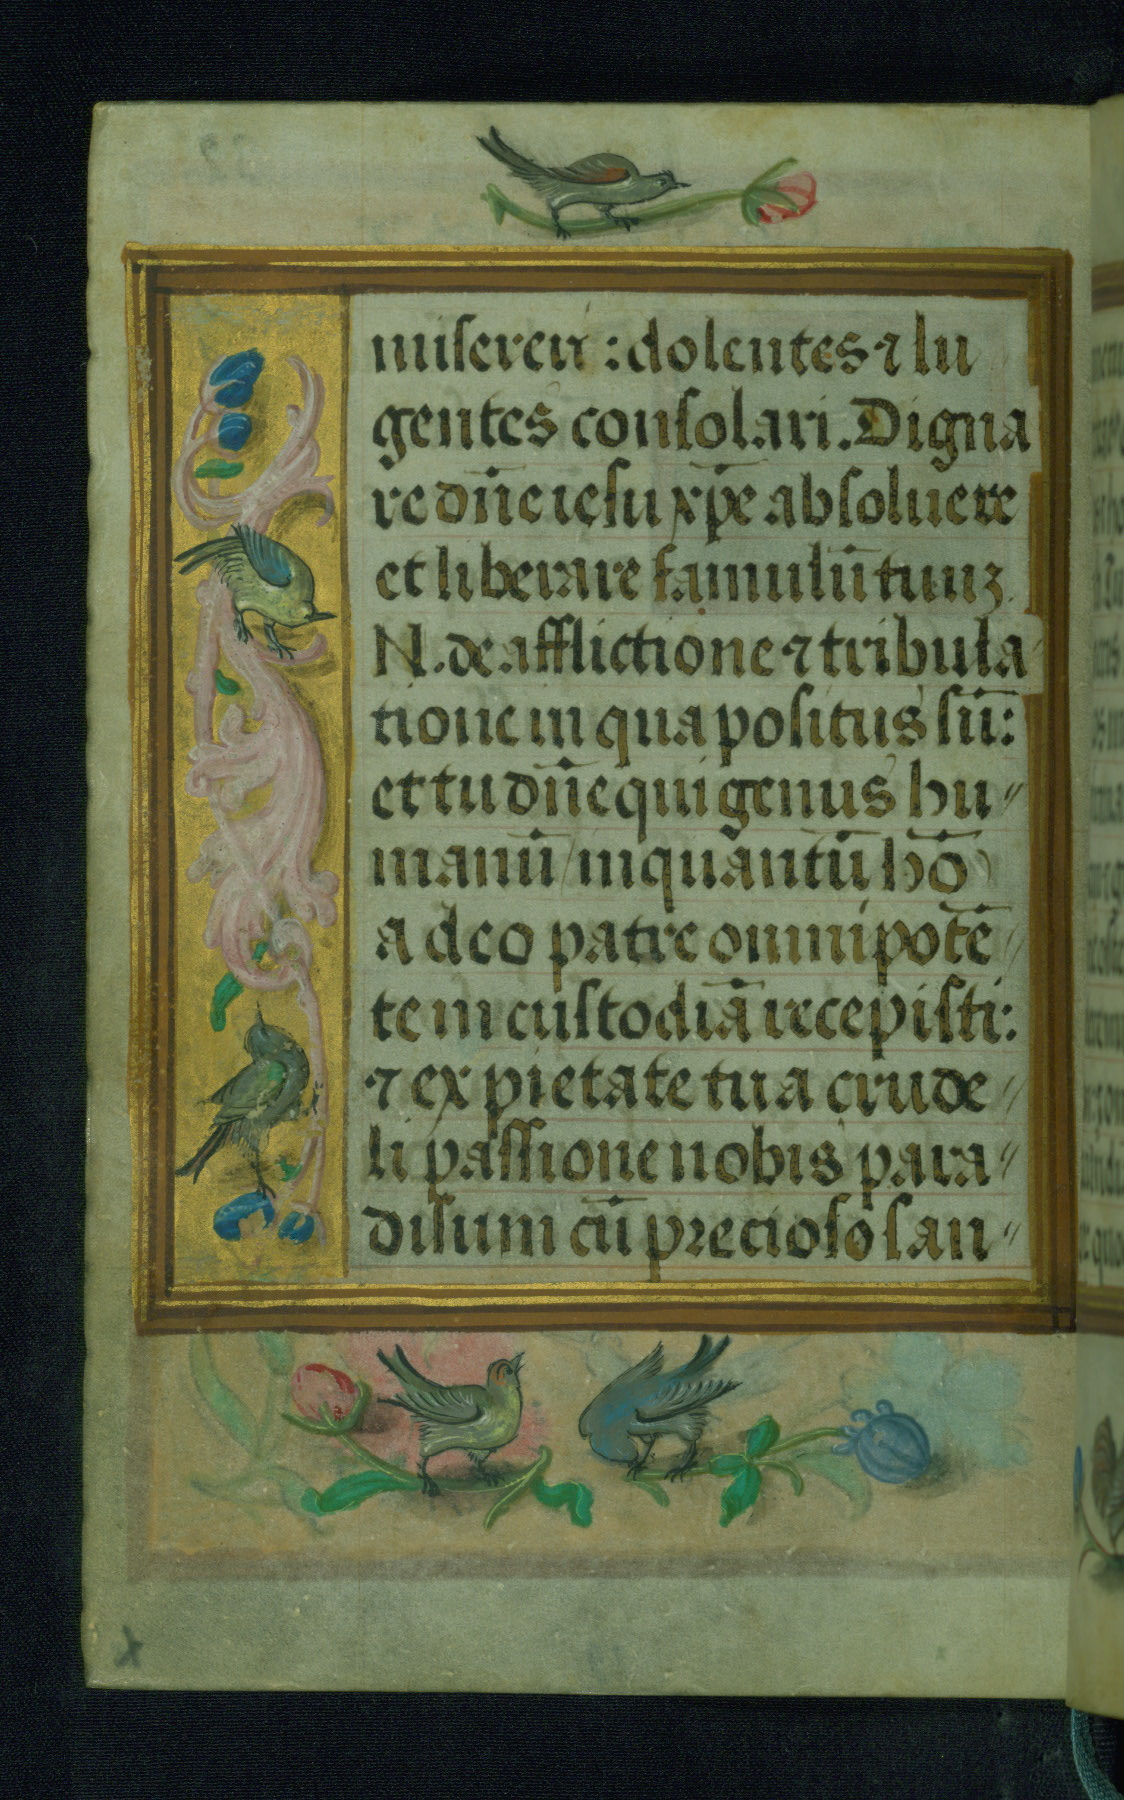 misereri : dolentes ⁊ lu
gentes consolari. Digna
re dn̄e iesu xp̄e absoluere
et liberare famulū tuuʒ
N. de afflictione ⁊ tribula
tione in qua positus sū:
et tu dn̄e qui genus hu〃
manū / inquantū hō
a deo patre omnipotē〃
te in custodiā recepisti:
⁊ ex pietate tua crude〃
li passione nobis para〃
disum cū precioso san〃